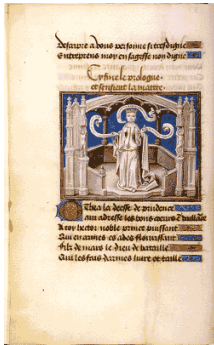 De faire a vous personne si tres digne
Entreprens moy en sagesse non digne
Cy fine le prologue
et sensuit la matiere
Othea la deesse de prudence
qui adresse les bons cueurs vaillance
A toy hector noble prince puissant
Qui en armes es ades florissant
Filz de mars le dieu de bataille
Qui les fais darmes livre et taille